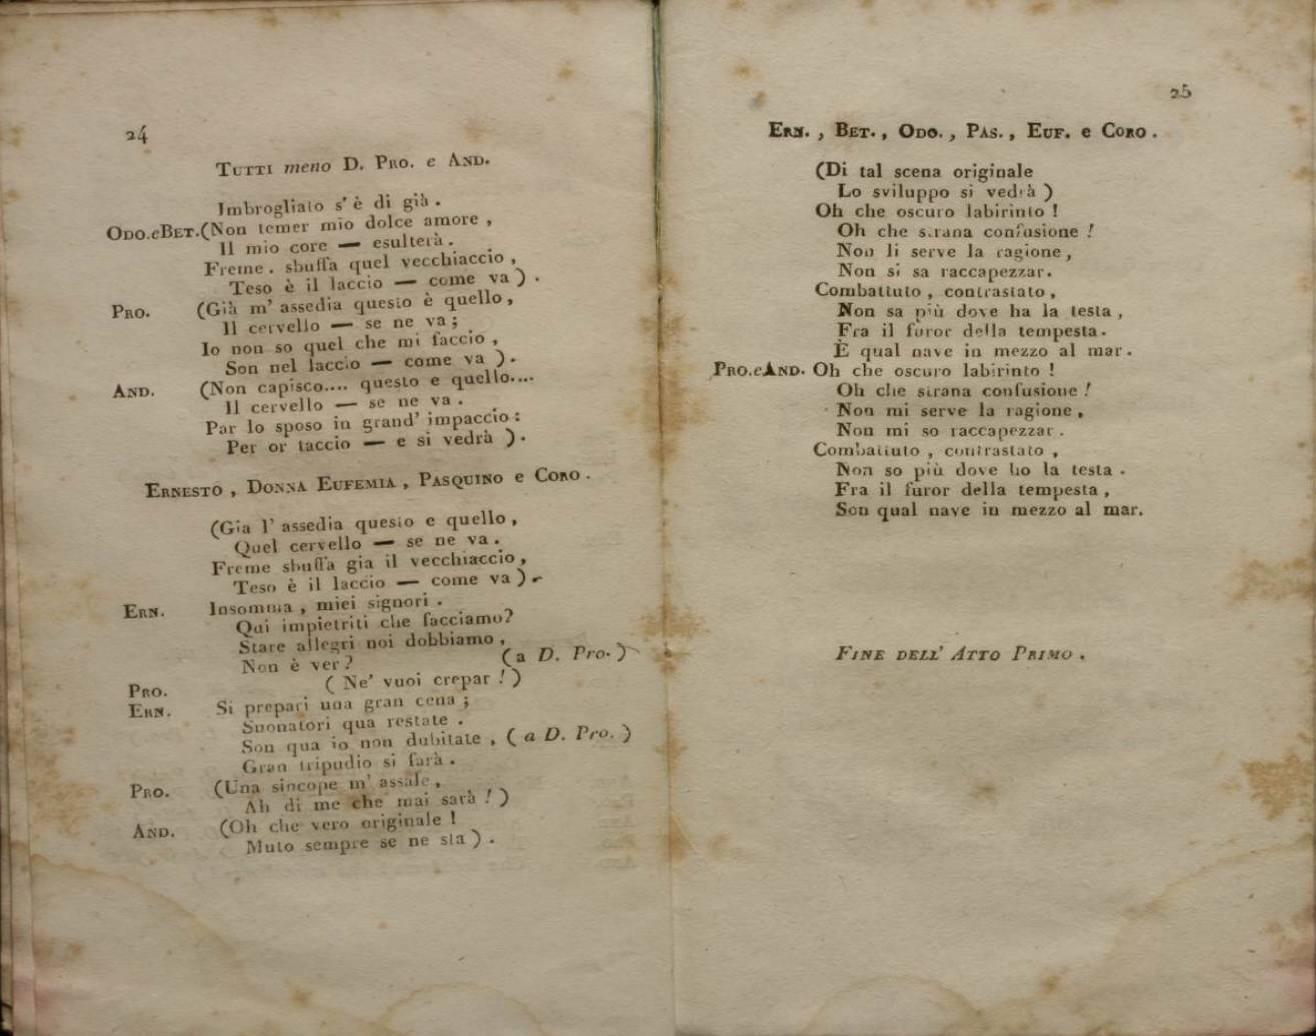 24
TUTTI meno D. PRO. e AND.
Imbrogliato s' è di già .
ODO.eBET.(Non temer mio dolce amore ,
Il mio core — esulterà .
Freme . sbuffa quel vecchiaccio ,
Teso è il laccio — come va ) .
PRO. (Già m' assedia questo è quello ,
Il cervello — se ne va ;
Io non so quel che mi faccio ,
Son nel laccio — come va ) .
AND. (Non capisco.... questo e quello....
Il cervello — se ne va .
Par lo sposo in grand' impaccio :
Per or taccio — e si vedrà ) .
ERNESTO , DONNA EUFEMIA , PASQUINO e CORO .
(Gia l' assedia questo e quello ,
Quel cervello — se ne va .
Freme sbuffa gia il vecchiaccio ,
Teso è il laccio — come va ) .
ERN. Insomma , miei signori .
Qui impietriti che facciamo ?
Stare allegri noi dobbiamo ,
Non è ver ? (a D. Pro. )
PRO. ( Ne' vuoi crepar ! )
ERN. Si prepari una gran cena ;
Suonatori qua restate .
Son qua io non dubitate , ( a D. Pro. )
Gran tripudio si farà .
PRO. (Una sincope m' assale ,
Ah di me che mai sarà ! )
AND. (Oh che vero originale !
Muto sempre se ne sta ) .
25
ERN. , BET. , ODO. , PAS. , EUF. e CORO .
(Di tal scena originale
Lo sviluppo si vedrà )
Oh che oscuro labirinto !
Oh che strana confusione !
Non li serve la ragione ,
Non si sa raccapezzar .
Combattuto , contrastato ,
Non sa più dove ha la testa ,
Fra il furor della tempesta .
È qual nave in mezzo al mar .
PRO.eAND. Oh che oscuro labirinto !
Oh che strana confusione !
Non mi serve la ragione ,
Non mi so raccapezzar .
Combattuto , contrastato ,
Non so più dove ho la testa .
Fra il furor della tempesta ,
Son qual nave in mezzo al mar.
FINE DELL' ATTO PRIMO .